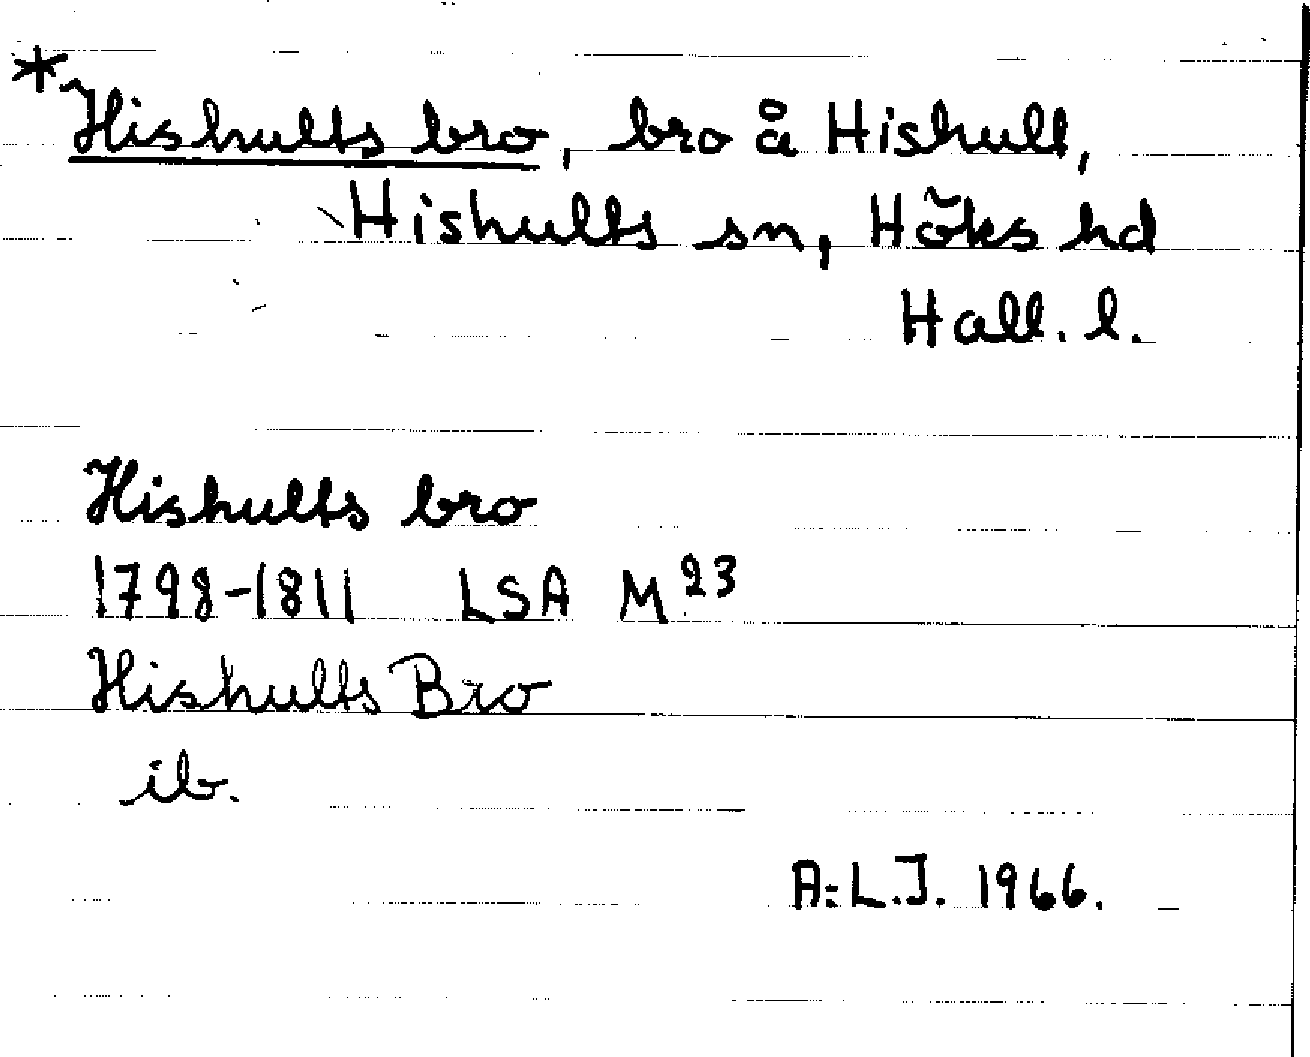 *Hishults bro, bro å Hishult,
Hishults sn, Höks hd
Hall. l.
Hishults bro
1798-1811 LSA M23
Hishults Bro
ib.
A:L.J. 1966.